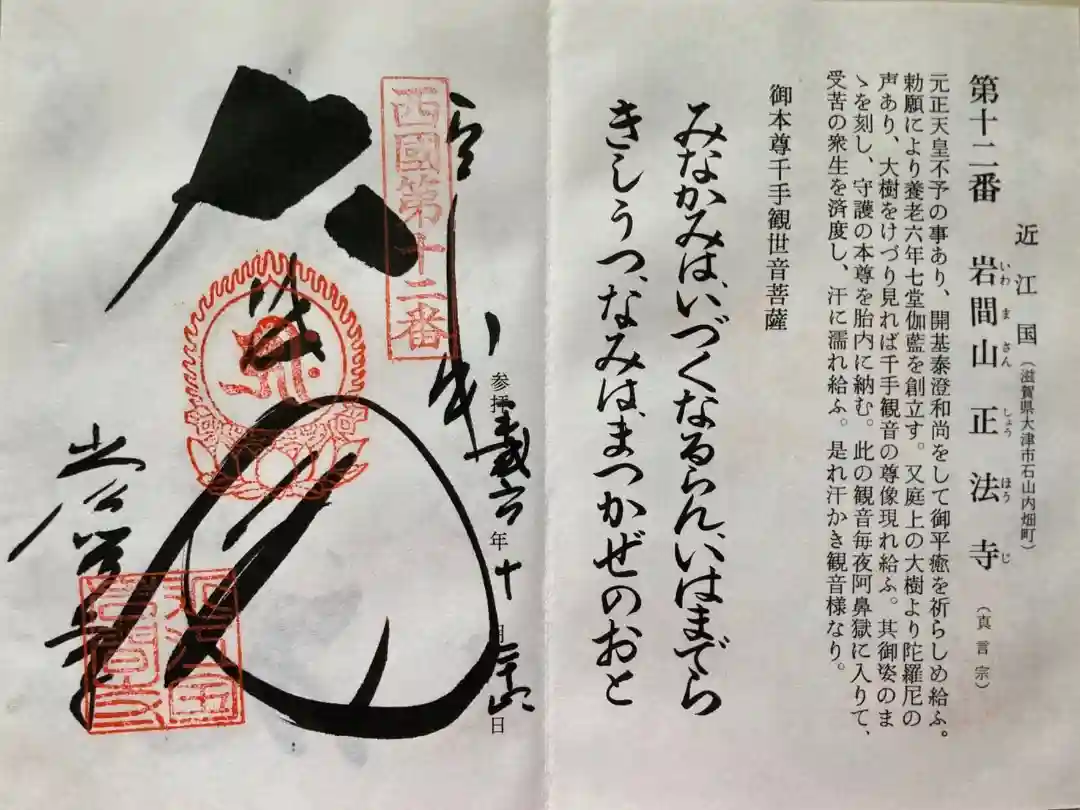 近江国（滋賀県大津市石山内畑町）
第十二番 岩間山正法寺（真言宗）
いわ ま さん しょう ほう じ
元正天皇不予の事あり、開基泰澄和尚をして御平癒を祈らしめ給ふ。
勅願により養老六年七堂伽藍を創立す。又庭上の大樹より陀羅尼の
声あり、大樹をけづり見れば千手観音の尊像現れ給ふ。其御姿のま
ゝを刻し、守護の本尊を胎内に納む。此の観音毎夜阿鼻獄に入りて、
受苦の衆生を済度し、汗に濡れ給ふ。是れ汗かき観音様なり。
御本尊千手観世音菩薩
みなかみは、いづくなるらん、いはまでら
きしうつ、なみは、まつかぜのおと
参拝 六年十月 日
西國第十二番
大悲